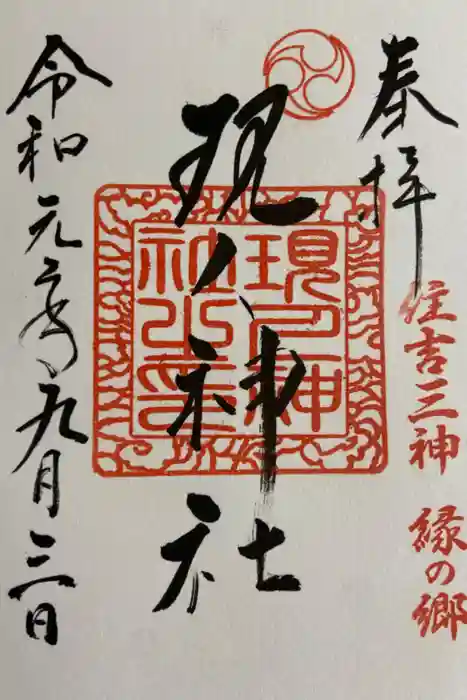 奉拝
住吉三神 縁の郷
現人神社
現人神
社之印
令和元年九月三日